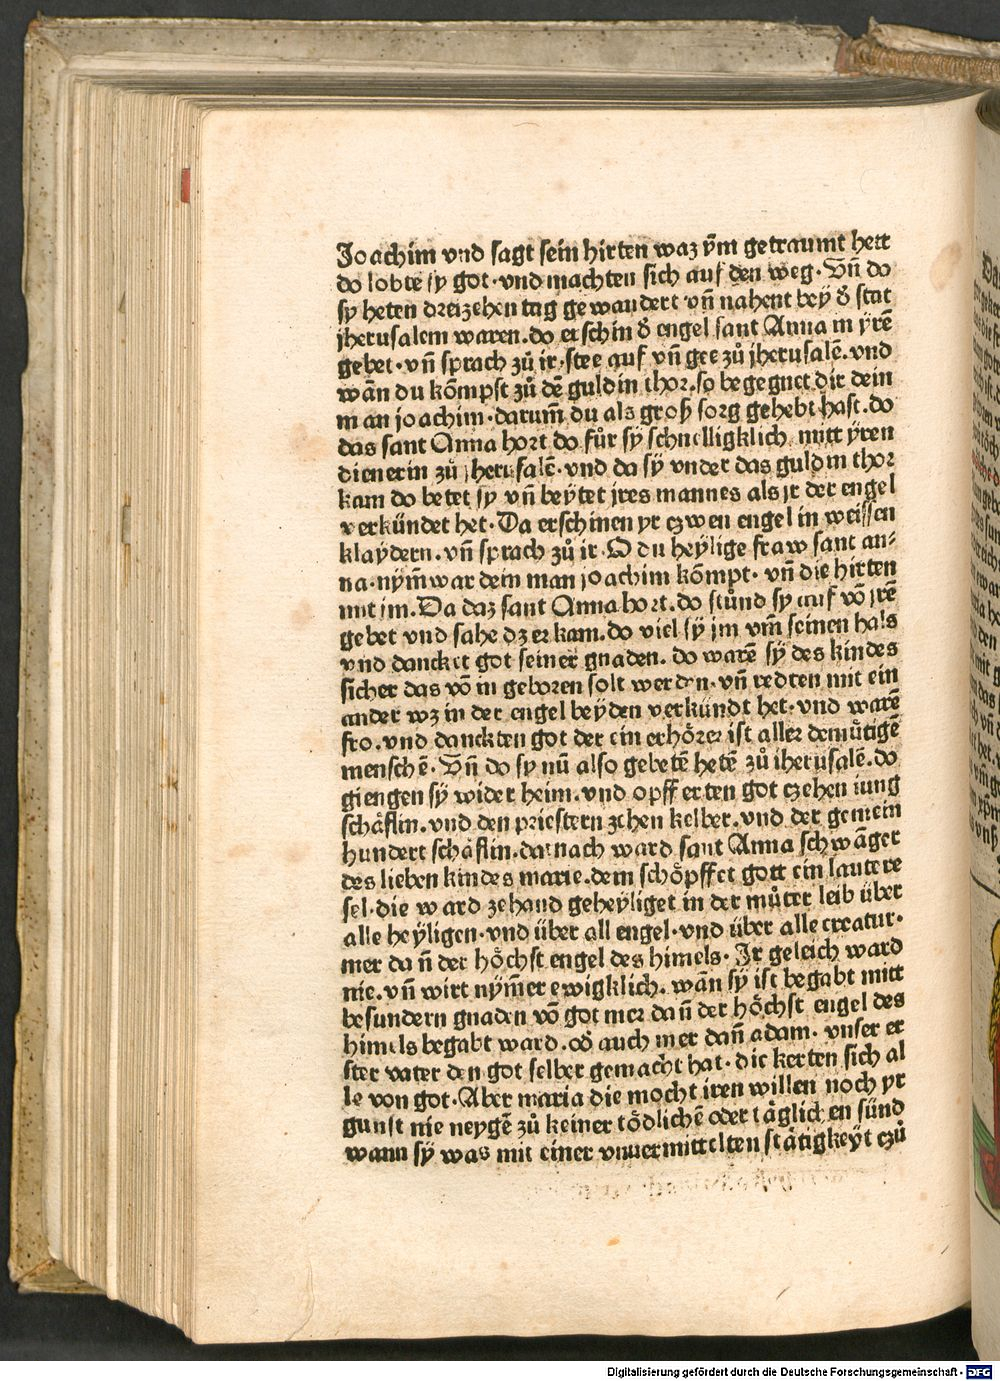 Joachim vnd sagt sein hirten waz ẏm getraumt hett
do lobte sy got · vnd machten sich auf den weg · Vñ do
sy heten dreizehen tag gewandert vñ nahent beÿ d̕ stat
jherusalem waren . do erschin d̕ engel sant Anna in ÿrē
gebet · vñ sprach zů ir , stee auf vñ gee zů jherusalē . vnd
wān du kōmpst zů dē guldin thor . so begegnet dir dein
man joachim · darum̄ du als groß sorg gehebt hast . do
das sant Anna hort do fůr sÿ schnelligklich mitt ÿren
dienerin zů jherusalē · vnd da sÿ vnder das guldin thor
kam do betet sy vñ beÿtet jres mannes als jr der engel
verkündet het · Da erschinen yr czwen engel in weissen
klaydern . vñ sprach zů ir · O du heÿlige fraw sant an⸗
na · nym̄ war dein man joachim kōmpt · vñ die hirten
mit im . Da daz sant Anna hort . do stůnd sy auf vō jrē
gebet vnd sahe dz er kam . do viel sÿ jm vm̄ seinen hals
vnd dancket got seiner gnaden . do warē sÿ des kindes
sicher das vō in geboren solt werden · vñ redten mit ein
ander wz in der engel beyden verkündt het · vnd warē
fro . vnd danckten got der ein erhôrer ist aller demůtigē
menschē · Vñ do sy nů also gebetē hetē zů iherusalē . do
giengen sÿ wider heim . vnd opfferten got czehen iung
schåflin . vnd den priestern zehen kelber . vnd der gemein
hundert schåflin . darnach ward sant Anna schwånger
des lieben kindes marie . dem schôpffet gott ein lautere
sel · die ward zehand geheÿliget in der můter leib über
alle heÿligen · vnd über all engel · vnd über alle creatur ·
mer dañ der hôchst engel des himels · Ir geleich ward
nie . vñ wirt nÿm̄er ewigklich . wān sÿ ist begabt mitt
besundern gnaden vō got mer dañ der hôchst engel des
himels begabt ward . od̕ auch mer dañ adam · vnser er
ster vater den got selber gemacht hat · die kerten sich al
le von got · Aber maria die mocht iren willen noch yr
gunst nie neygē zů keiner tôdlichē oder tåglichen sünd
wann sÿ was mit einer vnuermittelten ståtigkeÿt czů
Digitalisierung gefördert durch die Deutsche Forschungsgemeinschaft - DFG